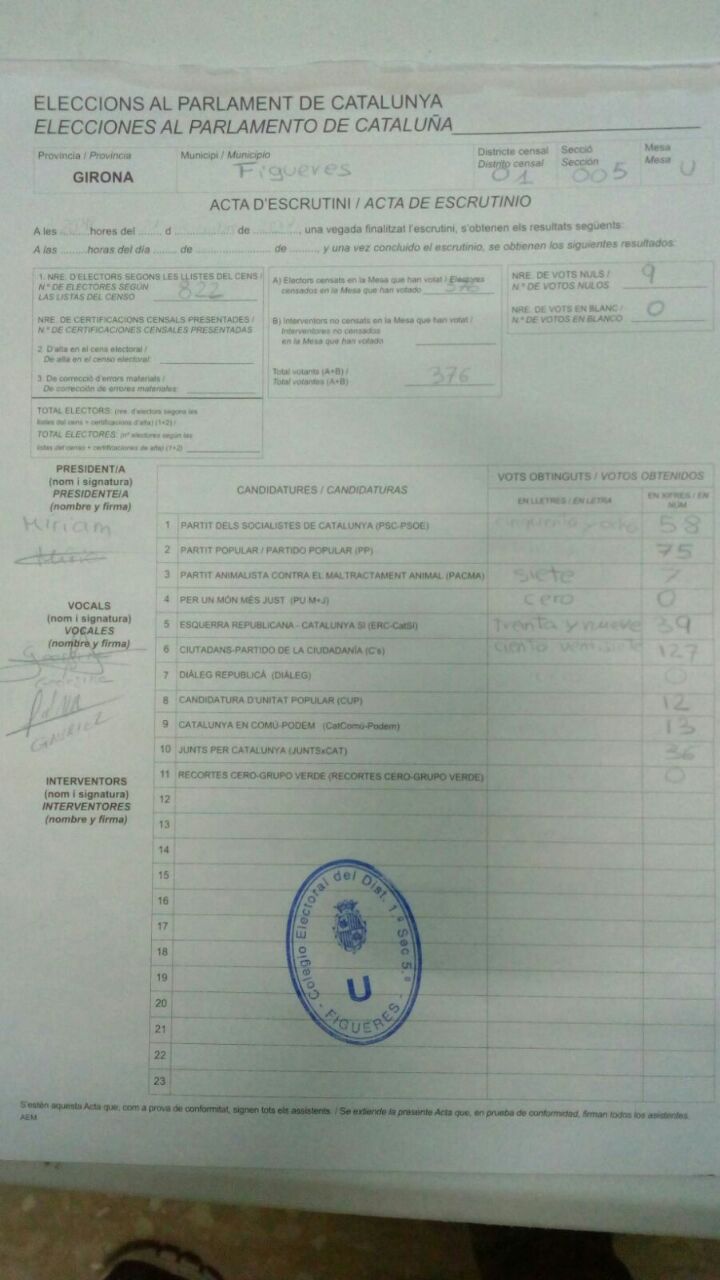 ELECCIONS AL PARLAMENT DE CATALUNYA
ELECCIONES AL PARLAMENTO DE CATALUÑA
Provincia / Provincia
GIRONA
Municipi / Municipio
Figueres
Districte censal
Distrito censal
01
Secció
Sección
005
Mesa
Mesa
U
ACTA D'ESCRUTINI / ACTA DE ESCRUTINIO
A les hores del d de , una vegada finalitzat l'escrutini, s'obtenen els resultats següents:
A las horas del día de de , y una vez concluido el escrutinio, se obtienen los siguientes resultados:
1. NRE. D'ELECTORS SEGONS LES LLISTES DEL CENS /
N.º DE ELECTORES SEGÚN
LAS LISTAS DEL CENSO 822
NRE. DE CERTIFICACIONS CENSALS PRESENTADES /
N.º DE CERTIFICACIONES CENSALES PRESENTADAS
2. D'alta en el cens electoral /
De alta en el censo electoral:
3. De correcció d'errors materials /
De corrección de errores materiales:
TOTAL ELECTORS: (nre. d'electors segons les
llistes del cens + certificacions d'alta) (1+2) /
TOTAL ELECTORES: (nº electores según las
listas del censo + certificaciones de alta) (1+2)
A) Electors censats en la Mesa que han votat / Electores
censados en la Mesa que han votado 376
B) Interventors no censats en la Mesa que han votat /
Interventores no censados
en la Mesa que han votado
Total votants (A+B) /
Total votantes (A+B) 376
NRE. DE VOTS NULS /
N.º DE VOTOS NULOS 9
NRE. DE VOTS EN BLANC /
N.º DE VOTOS EN BLANCO 0
PRESIDENT/A
(nom i signatura)
PRESIDENTE/A
(nombre y firma)
Miriam
VOCALS
(nom i signatura)
VOCALES
(nombre y firma)
INTERVENTORS
(nom i signatura)
INTERVENTORES
(nombre y firma)
CANDIDATURES / CANDIDATURAS
VOTS OBTINGUTS / VOTOS OBTENIDOS
EN LLETRES / EN LETRA
EN XIFRES / EN NÚM
1 PARTIT DELS SOCIALISTES DE CATALUNYA (PSC-PSOE) cinquenta y ocho 58
2 PARTIT POPULAR / PARTIDO POPULAR (PP) 75
3 PARTIT ANIMALISTA CONTRA EL MALTRACTAMENT ANIMAL (PACMA) siete 7
4 PER UN MÓN MÉS JUST (PU M+J) cero 0
5 ESQUERRA REPUBLICANA - CATALUNYA SÍ (ERC-CatSí) treinta y nueve 39
6 CIUTADANS-PARTIDO DE LA CIUDADANÍA (C's) ciento 127
7 DIÀLEG REPUBLICÀ (DIÀLEG) 0
8 CANDIDATURA D'UNITAT POPULAR (CUP) 12
9 CATALUNYA EN COMÚ-PODEM (CatComú-Podem) 13
10 JUNTS PER CATALUNYA (JUNTSxCAT) 36
11 RECORTES CERO-GRUPO VERDE (RECORTES CERO-GRUPO VERDE) 0
12
13
14
15
16
17
18
19
20
21
22
23
Colegio Electoral del Dist. 1.º Sec 5.ª
U
- FIGUERES -
S'estén aquesta Acta que, com a prova de conformitat, signen tots els assistents. / Se extiende la presente Acta que, en prueba de conformidad, firman todos los asistentes.
AEM